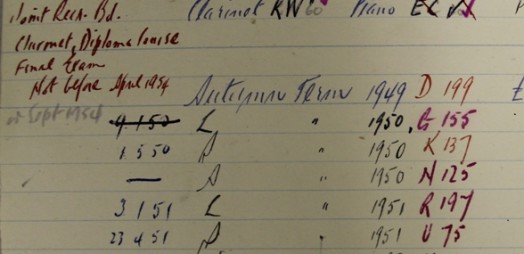 Joint Recn. Bd. Clarinet RW 60 Piano EC
Clarinet, Diploma Course
Final Exam
Not before April 1954 Autumn Term 1949 D 199
or Sept 1954 9 1 50 L " 1950 G 155
1 5 50 S " 1950 K 137
— A 1950 N 125
3 1 51 L " 1951 R 197
23 4 51 S " 1951 U 75